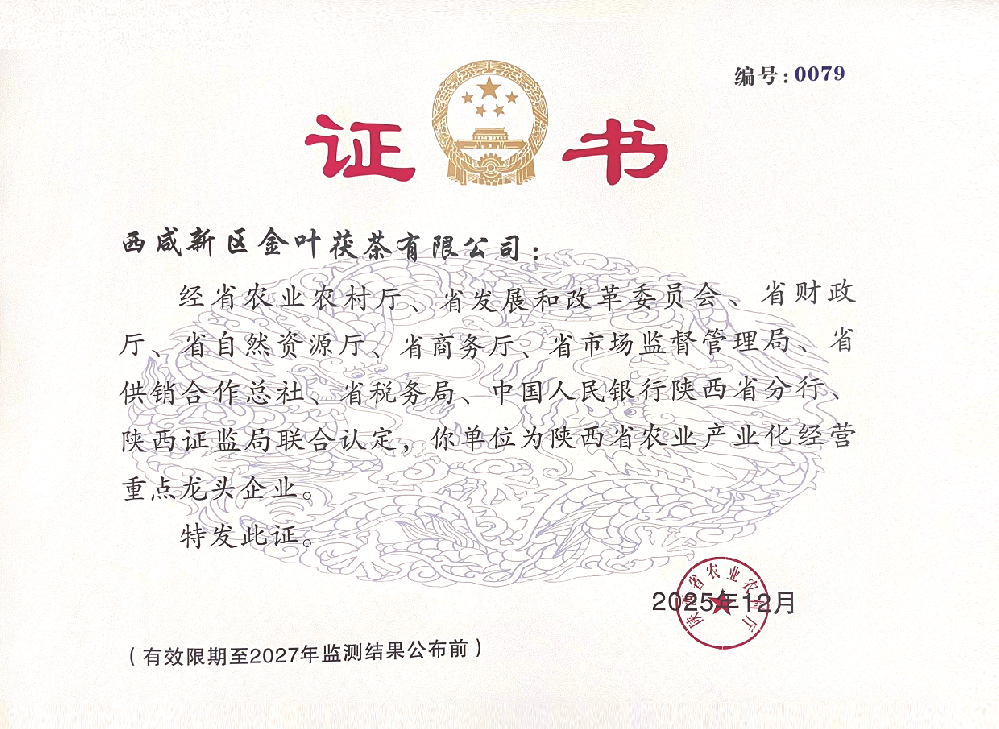 编号:0079
证书
西咸新区金叶茯茶有限公司：
经省农业农村厅、省发展和改革委员会、省财政
厅、省自然资源厅、省商务厅、省市场监督管理局、省
供销合作总社、省税务局、中国人民银行陕西省分行、
陕西证监局联合认定，你单位为陕西省农业产业化经营
重点龙头企业。
特发此证。
陕西省农业农村厅
2025年12月
（有效限期至2027年监测结果公布前）